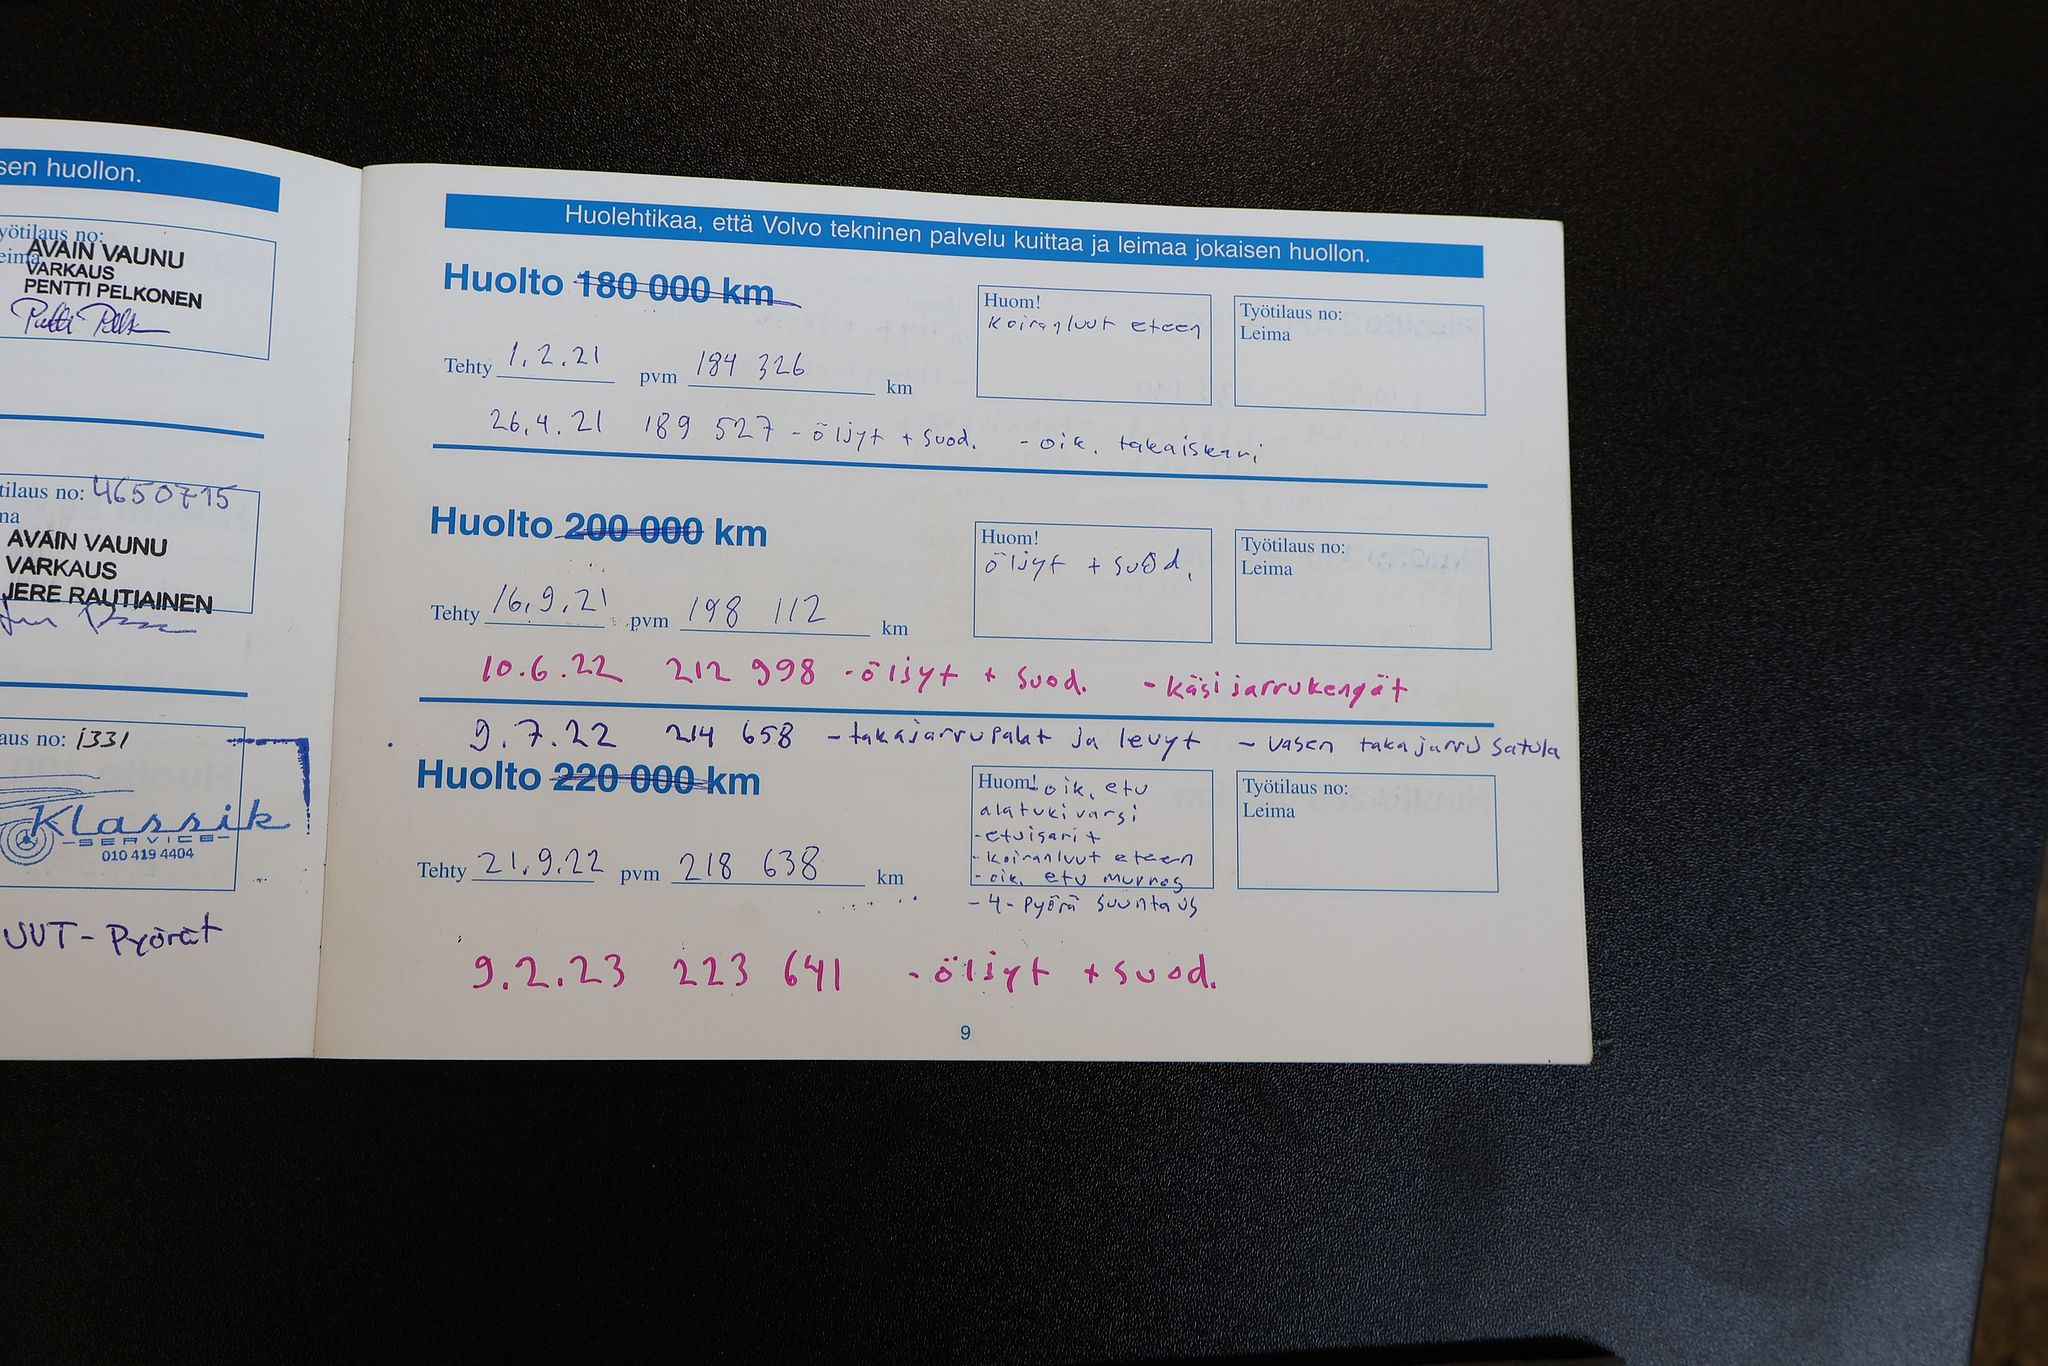 sen huollon.
yötilaus no:
eima
AVAIN VAUNU
VARKAUS
PENTTI PELKONEN
tilaus no: 4650715
na
AVAIN VAUNU
VARKAUS
JERE RAUTIAINEN
aus no: 1331
Klassik
SERVICE
010 419 4404
UUT - Pyörät
Huolehtikaa, että Volvo tekninen palvelu kuittaa ja leimaa jokaisen huollon.
Huolto 180 000 km
Huom!
Koiranluut eteen
Työtilaus no:
Leima
Tehty 1.2.21 pvm 184 326 km
26.4.21 189 527 - öljyt + suod. - oik. takaiskari
Huolto 200 000 km
Huom!
öljyt + suod.
Työtilaus no:
Leima
Tehty 16.9.21 pvm 198 112 km
10.6.22 212 998 - öljyt + suod. - käsijarrukengät
9.7.22 214 658 - takajarrupalat ja levyt - vasen takajarru satula
Huolto 220 000 km
Huom! - oik. etu
alatukivarsi
- etuisarit
- koiranluut eteen
- oik. etu murros
- 4-pyörä suuntaus
Työtilaus no:
Leima
Tehty 21.9.22 pvm 218 638 km
9.2.23 223 641 - öljyt + suod.
9